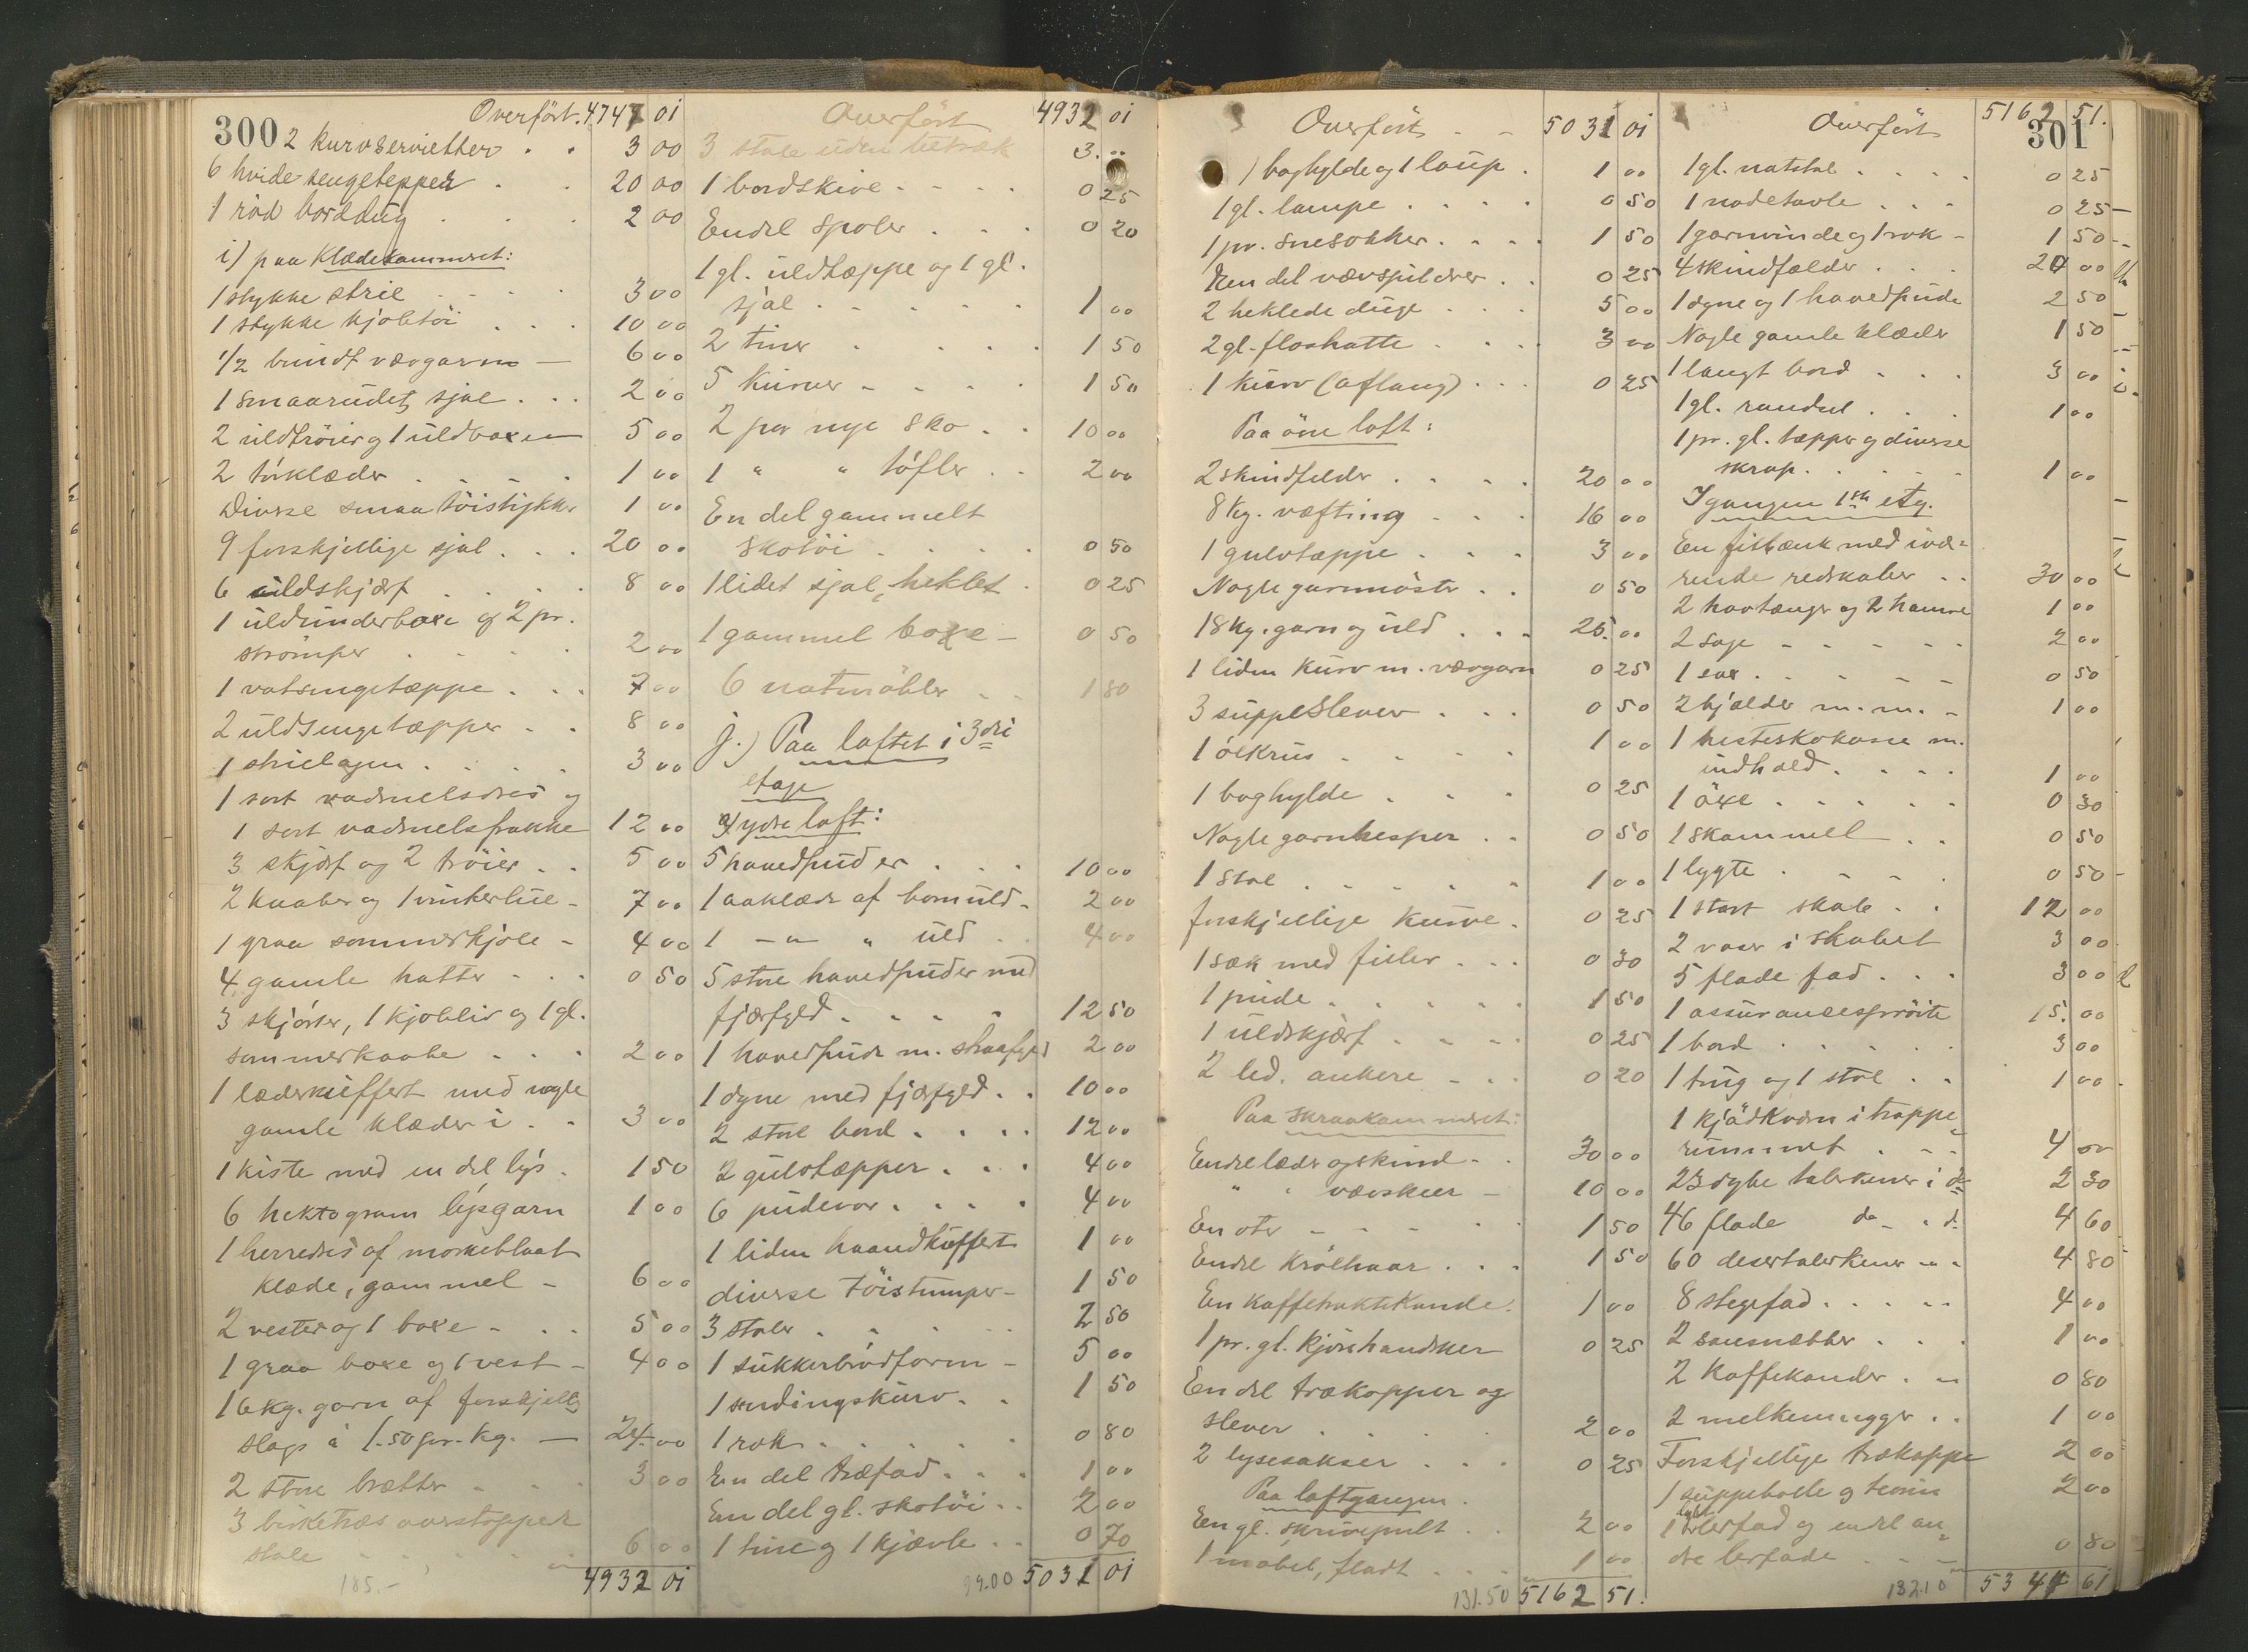 300
Overført. 4747 01
2 kurvservietter . . 3 00
6 hvide sengetepper . . 20 00
1 rød borddug . . . 2 00
i) paa Klædekammeret:
1 stykke strie . . . . 3 00
1 stykke kjoletøi . . . 10 00
1/2 bundt vævgarn — 6 00
1 smaarudet sjal . . . 2 00
2 uldtrøier og 1 uldboxen 5 00
2 tørklæder . . . . 1 00
Diverse smaa tøistykker 1 00
9 forskjellige sjal . . . 20 00
6 uldskjærf . . . . 8 00
1 uldunderboxe og 2 pr.
strømper . . . . 2 00
1 vatsengetæppe . . . 7 00
2 uldsengetæpper . . 8 00
1 strielagen . . . . 3 00
1 sort vadmelsdres og
1 sort vadmelsfrakke 12 00
3 skjærf og 2 trøier . . 5 00
2 kaaber og 1 vinterlue - 7 00
1 graa sommerkjole - 4 00
4 gamle hatter - . . 0 50
3 skjørter, 1 kjoleliv og 1 gl.
sommerkaabe . . . 2 00
1 læderkuffert med nogle
gamle klæder i . . 3 00
1 kiste med en del lys . 1 50
6 hektogram lysgarn 1 00
1 herredres af mørkeblaat
klæde, gammel - 6 00
2 vester og 1 boxe - . . 5 00
1 graa boxe og 1 vest - 4 00
16 kg. garn af forskjellig
slags à 1.50 pr. kg. — 24 00
2 store brætter . . . 3 00
3 birketræs overstoppet
stole - - . . . . 6 00
185.- 4932 01
Overført 4932 01
3 stole uden betræk 3. 00
1 bordskive - - . . 0 25
En del spoler . . . 0 20
1 gl. uldtæppe og 1 gl.
sjal - - . . . 1 00
2 tiner . . . . . 1 50
5 kurver - - . . 1 50
2 par nye sko . . 10 00
1 " " tøfler . . 2 00
En del gammelt
skotøi . . . . 0 50
1 lidet sjal, heklet . 0 25
1 gammel boxe - 0 50
6 natmöbler . . 1 80
j.) Paa loftet i 3die
etage
Ydre loft:
5 hovedpuder . . . 10 00
1 aaklæde af bomuld - 2 00
1 - " - " uld . . 4 00
5 store hovedpuder med
fjærfyld . . . . 12 50
1 hovedpude m. straafyld 2 00
1 dyne med fjærfyld . . 10 00
2 store bord . . . . 12 00
2 gulvtæpper . . . 4 00
6 pudevar . . . . 4 00
1 liden haandkuffert 1 00
diverse tøistumper - 1 50
3 stoler . . . . . 2 50
1 sukkerbrødform - 5 00
1 sendingskurv . . 1 50
1 rok . . . . . 0 80
En del træfad . . . 1 00
En del gl. skotøi . . 2 00
1 tine og 1 kjævle . . 0 70
99.00 5031 01
Overført - - 5031 01
1 boghylde og 1 loup . 1 00
1 gl. lampe . . . . 0 50
1 pr. snesokker . . . . 1 50
En del vævspildrer . . 0 25
2 heklede duge . . . 5 00
2 gl. floshatte . . . . 3 00
1 kurv (aflang) . . . 0 25
Paa övre loft:
2 skindfelder . . . . 20 00
8 kg. væfting - - . 16 00
1 gulvtæppe . . . 3 00
Nogle garnnöster . . 0 50
18 kg. garn og uld . . . 25. 00
1 liden kurv m. vævgarn 0 25
3 suppeslever . . . 0 50
1 ölkrus . . . . 1 00
1 boghylde . . . 0 25
Nogle garnhesper . . 0 50
1 stol . . . . . 1 00
forskjellige kurve . 0 25
1 sæk med filler . . . 0 30
1 pude . . . . . 1 50
1 uldskjærf . . . . 0 25
2 led. ankere - . . 0 20
Paa skraakammeret:
En del læder og skind - . 30 00
" " vævskeer - 10 00
En oter - - . . . 1 50
En del krølhaar . . . 1 50
En kaffetraktekande . 1 00
1 pr. gl. kjørehandsker 0 25
En del trækopper og
slever . . . . . 2 00
2 lysesakser . . . 0 25
Paa loftgangen.
En gl. skrivepult . . 2 00
1 möbel, fladt . . . 1 00
131.50 5162 51.
301
Overført 5162 51.
1 gl. natstol . . . . 0 25
1 nodetavle . . . 0 25
1 garnvinde og 1 rok - 1 50
4 skindfælder . . . 20 00
1 dyne og 1 hovedpude 2 50
Nogle gamle klæder 1 50
1 langt bord . . . 3 00
1 gl. rundsel . . . 1 00
1 pr. gl. tæpper og diverse
skrap . . . . . 1 00
I gangen 1ste etg.
En filbænk med ivæ=
rende redskaber . . 30 00
2 hovtænger og 2 hamre 1 00
2 sage - - - - - 2 00
1 sax . . . . . 0 50
2 bjælder m.m. - 1 00
1 hesteskokasse m.
indhold . . . . 1 00
1 öxe . . . . . 0 30
1 skammel . . 0 50
1 lygte . . . . . 0 50
1 stort skab . . 12 00
2 vaser i skabet 3 00
5 flade fad . . . 3 00
1 assurancesprøite 15. 00
1 bord . . . . . 3 00
1 trug og 1 stol . . 1 00
1 kjödkværn i trappe=
rummet . . . 4 00
23 dybe talerkener i do 2 30
46 flade do - " do 4 60
60 deserttalerkener " " 4 80
8 stegefad . . . . . 4 00
2 sausnætter . . . 1 00
2 kaffekander . " 0 80
2 melkemugger . . 1 00
Forskjellige trækoppe 2 00
1 suppebolle og terrin 2 00
1 lerfad og en del an=
dre lerfade . . . 0 80
132.10 5344 61